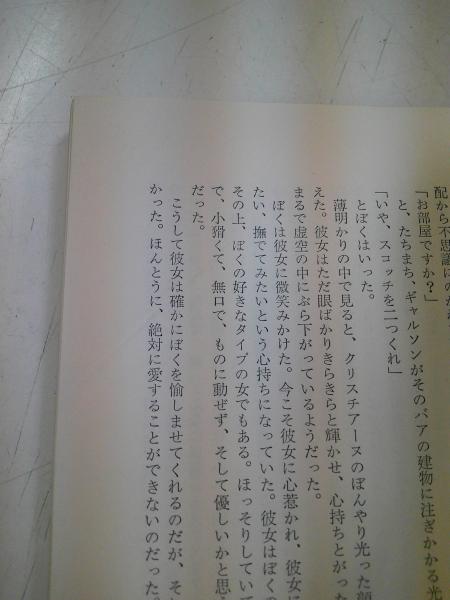 配から不思議に
「お部屋ですか？」
と、たちまち、ギャルソンがそのバアの建物に注ぎかかる光
「いや、スコッチを二つくれ」
とぼくはいった。
薄明かりの中で見ると、クリスチアーヌのぼんやり光った顔
えた。彼女はただ眼ばかりきらきらと輝かせ、心持ちとがった
まるで虚空の中にぶら下がっているようだった。
ぼくは彼女に微笑みかけた。今こそ彼女に心惹かれ、彼女に
たい、撫でてみたいという心持ちになっていた。彼女はぼくの
その上、ぼくの好きなタイプの女でもある。ほっそりしていて
で、小猾くて、無口で、ものに動ぜず、そして優しいかと思え
だった。
こうして彼女は確かにぼくを愉しませてくれるのだが、それ
かった。ほんとうに、絶対に愛することができないのだった。